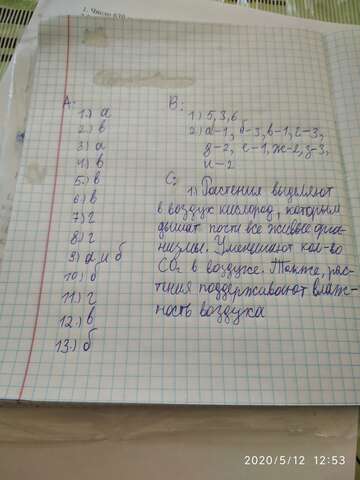 1. Число 830
A:
1.) а
2.) в
3.) а
4.) в
5.) в
6.) в
7.) г
8.) г
9.) а, и б
10.) б
11.) г
12.) в
13.) б
B:
1) 5,3,6
2) а-1, б-3, в-1, г-3,
д-2, е-1, ж-2, з-3,
и-2
C:
1) Растения выделяют
в воздух кислород, которым
дышат почти все живые орга-
низмы. Уменшают кол-во
CO₂ в воздухе. Также, рас-
тения поддерживают влаж-
ность воздуха
2020/5/12 12:53